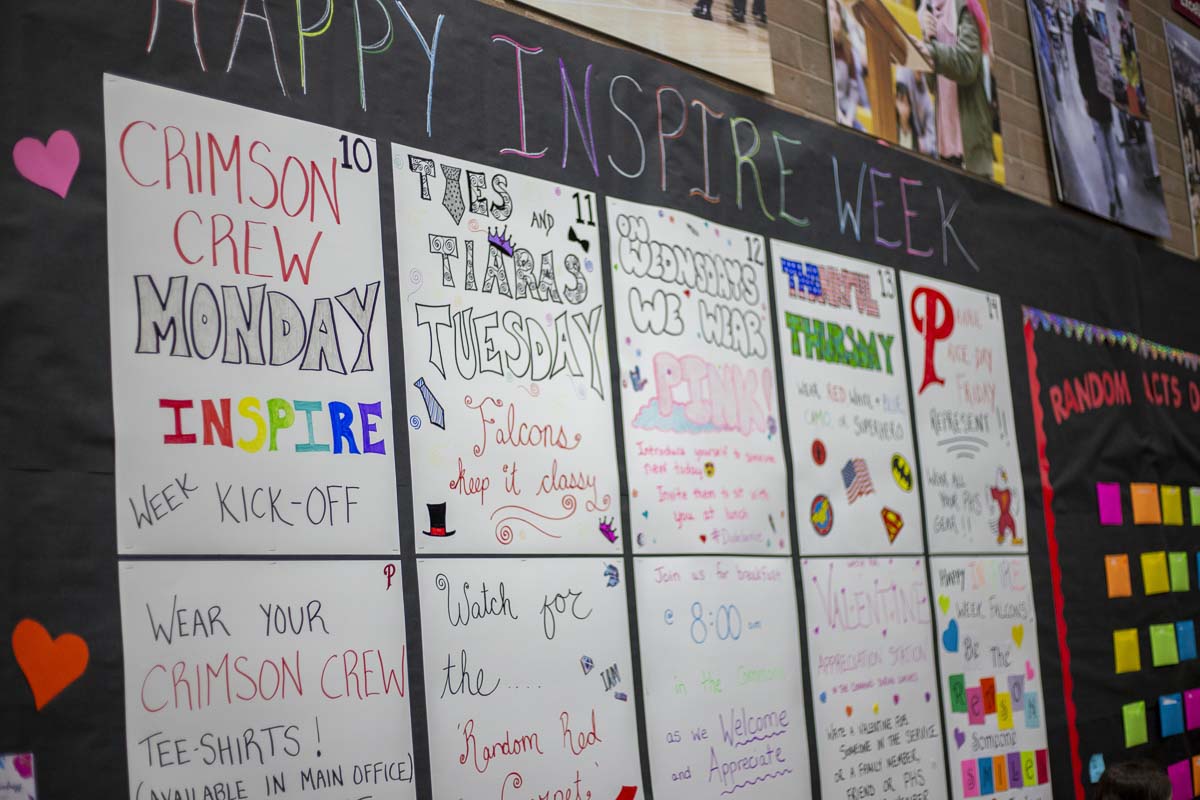 HAPPY INSPIRE WEEK
10
CRIMSON
CREW
MONDAY
INSPIRE
WEEK KICK-OFF
WEAR YOUR
CRIMSON CREW
TEE-SHIRTS!
(AVAILABLE IN MAIN OFFICE)
11
TIES
AND
TIARAS
TUESDAY
Falcons
keep it classy
Watch for
the .....
IAM
Random Red
Carpet
12
ON
WEDNSDAYS
WE WEAR
PINK!
Introduce yourself to someone
new today
Invite them to sit with
you at lunch
Join us for breakfast
@ 8:00 am
in the Commons
as we Welcome
and Appreciate
13
THANKFUL
THURSDAY
WEAR RED WHITE + BLUE,
CAMO, OR SUPERHERO
VALENTINE
APPRECIATION STATION
WRITE A VALENTINE FOR
SOMEONE IN THE SERVICE,
OR A FAMILY MEMBER,
FRIEND OR PHS
14
P
DAY
FRIDAY
REPRESENT!!
WEAR ALL
YOUR PHS
GEAR!!
P
Happy INSPIRE
WEEK FALCONS,
Be The
REASON
Someone
SMILES
RANDOM ACTS